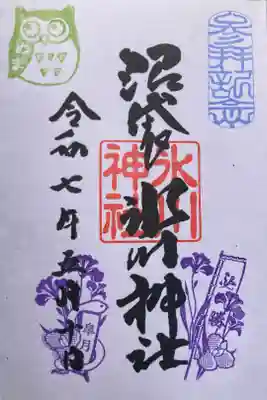 参拝記念
沼袋氷川神社
氷川
神社
令和七年五月十日
皐月
必勝